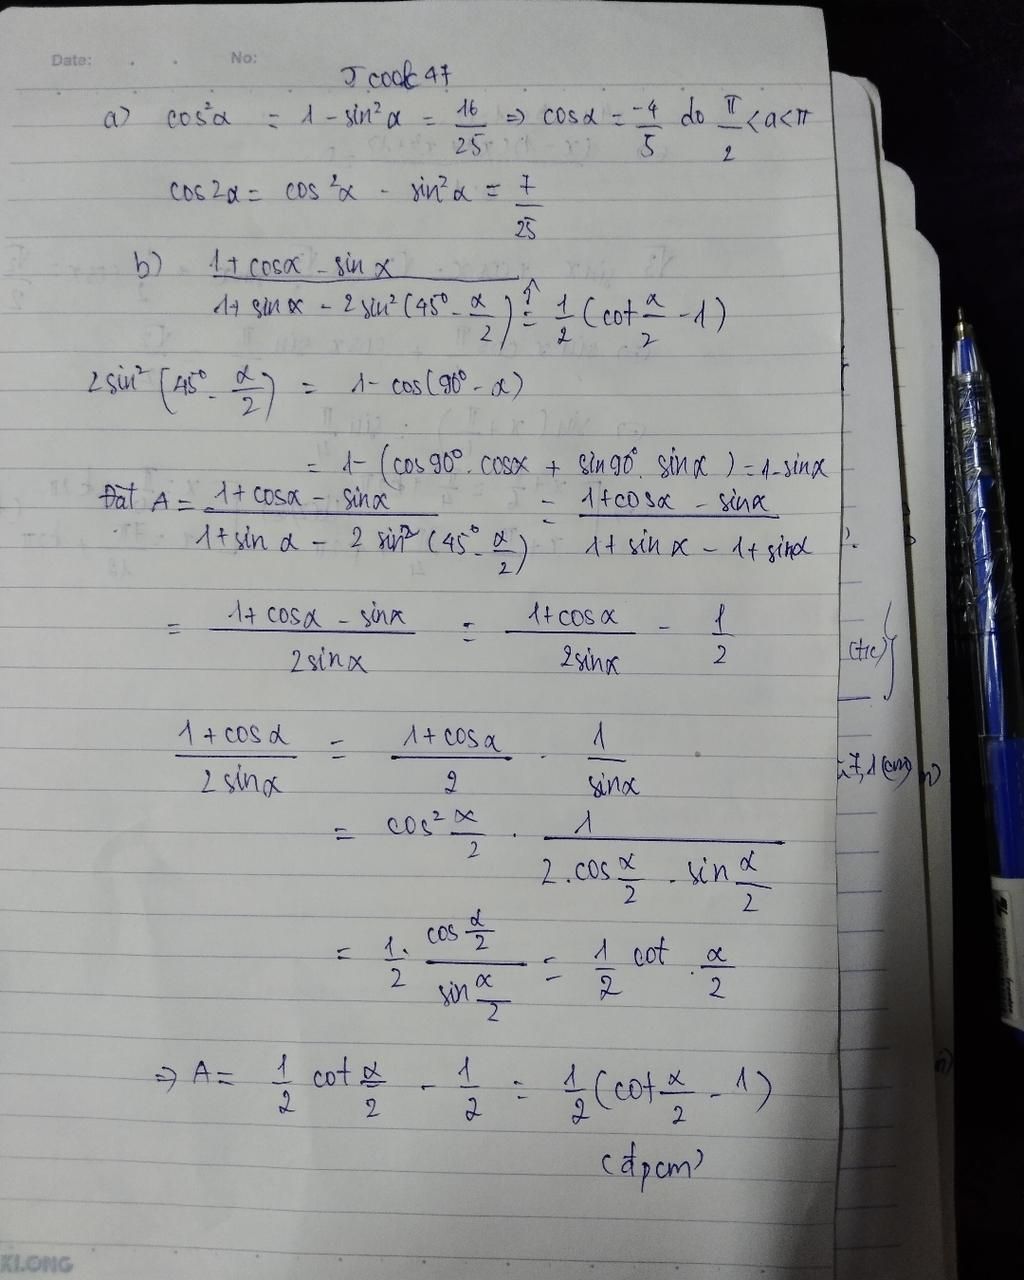 Date: . . No:
J cook 47
a) cos²α = 1 - sin²α = 16/25 => cosα = -4/5 do π/2 < a < π
cos2α = cos²α - sin²α = 7/25
b) (1 + cosα - sinα)/(1 + sinα - 2sin²(45° - α/2)) ?= 1/2 (cot α/2 - 1)
2sin²(45° - α/2) = 1 - cos(90° - α)
= 1 - (cos90°. cosα + sin90°. sinα) = 1 - sinα
Đặt A = (1 + cosα - sinα)/(1 + sinα - 2 sin²(45° - α/2)) = (1 + cosα - sinα)/(1 + sinα - 1 + sinα)
= (1 + cosα - sinα)/(2sinα) = (1 + cosα)/(2sinα) - 1/2
(tle)
(1 + cosα)/(2sinα) = (1 + cosα)/2 . 1/sinα
7,1 (cm)
= cos² α/2 . 1/(2.cos α/2 . sin α/2)
= 1/2 . (cos α/2)/(sin α/2) = 1/2 cot . α/2
=> A = 1/2 cot α/2 - 1/2 = 1/2 (cot α/2 - 1)
(đpcm)
KLONG